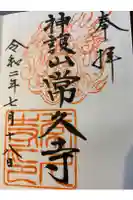 奉拝
神護山常久寺
令和二年七月十八日